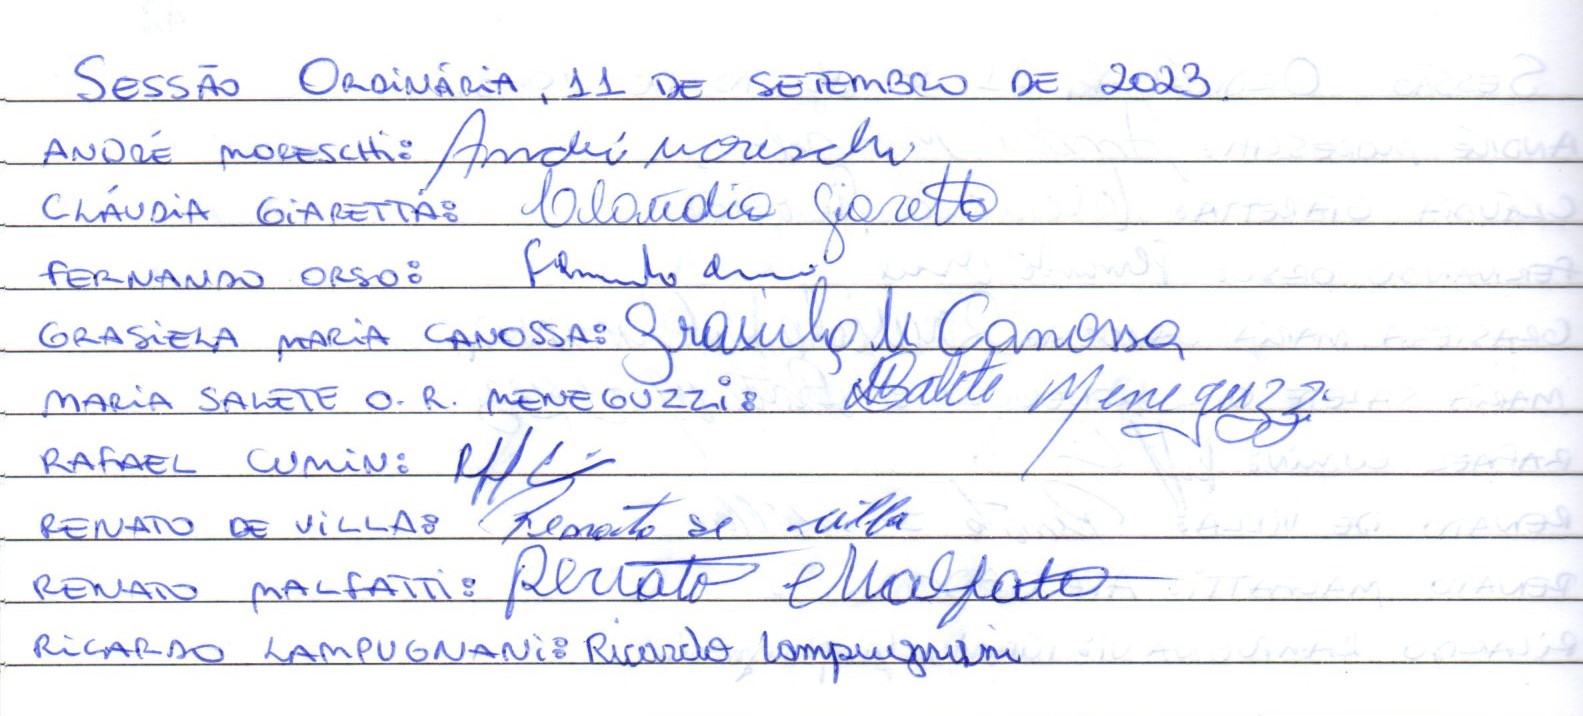 SESSÃO ORDINÁRIA, 11 DE SETEMBRO DE 2023.
ANDRÉ MORESCHI: André Moreschi
CLÁUDIA GIARETTA: Claudia Giaretta
FERNANDO ORSO: Fernando Orso
GRASIELA MARIA CANOSSA: Grasiela M Canossa
MARIA SALETE O. R. MENEGUZZI: Salete Meneguzzi
RAFAEL CUMIN:
RENATO DE VILLA: Renato de Villa
RENATO MALFATTI: Renato Malfatti
RICARDO LAMPUGNANI: Ricardo Lampugnani